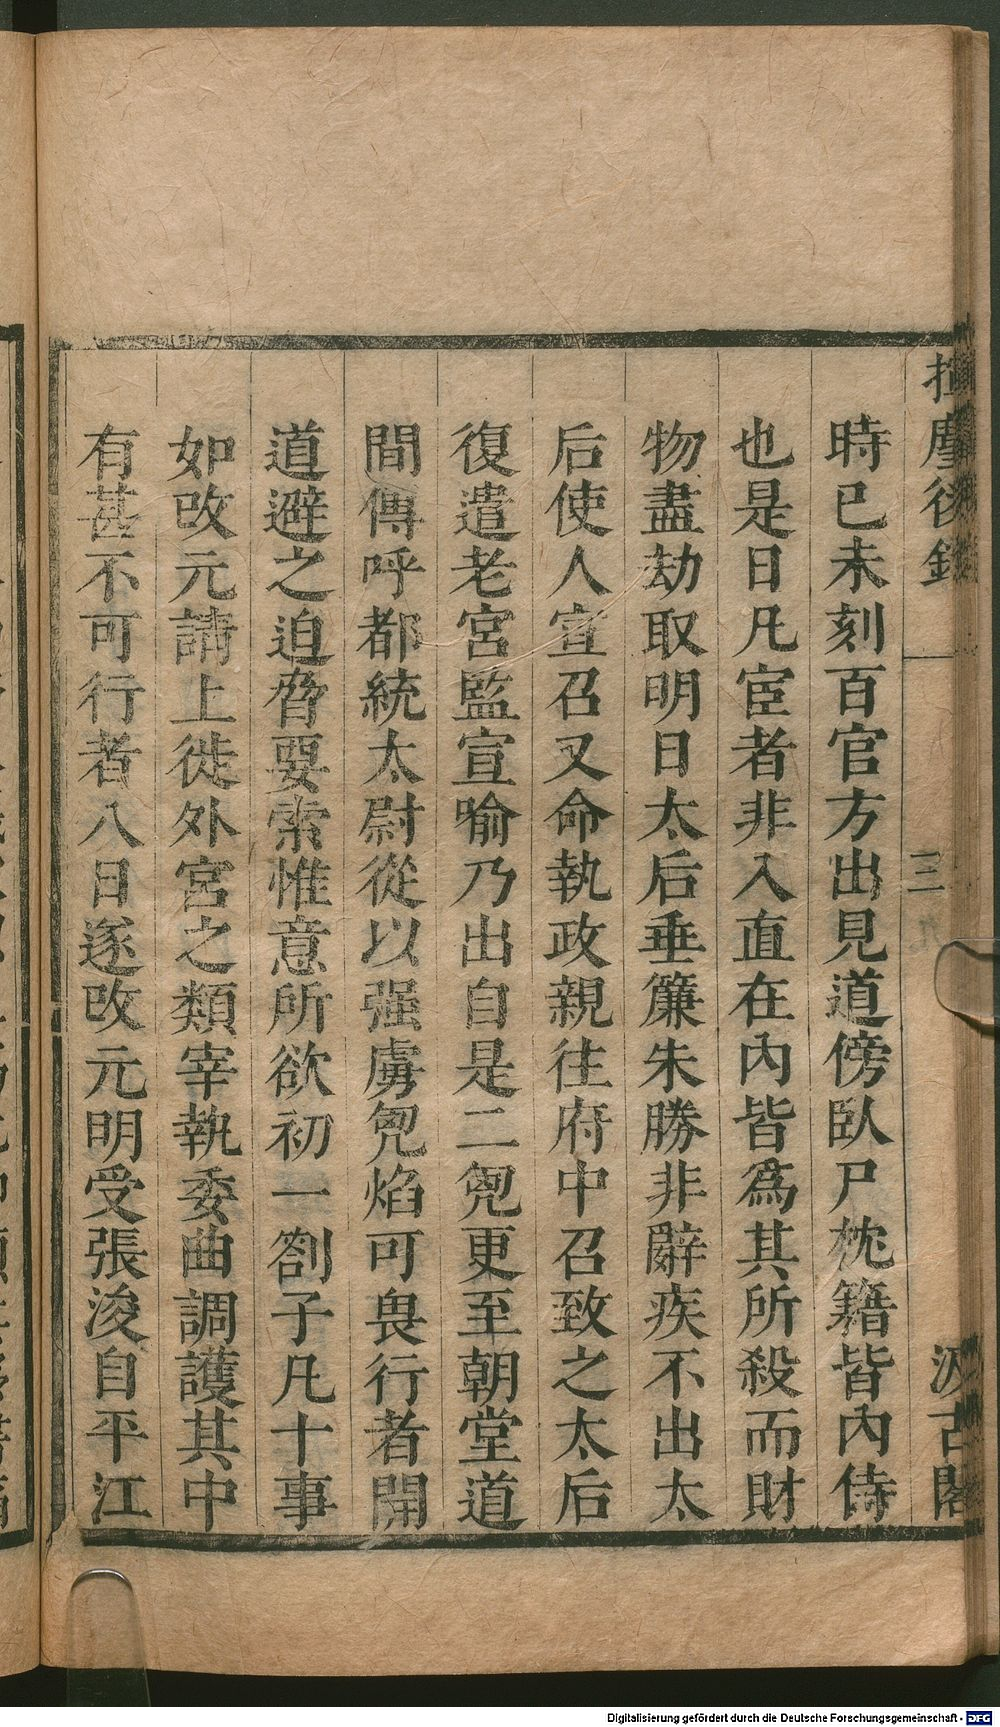 揮麈後錄
三
汲古閣
時已未刻百官方出見道傍臥尸枕籍皆內侍
也是日凡宦者非入直在內皆爲其所殺而財
物盡劫取明日太后垂簾朱勝非辭疾不出太
后使人宣召又命執政親往府中召致之太后
復遣老宮監宣喻乃出自是二兇更至朝堂道
間傳呼都統太尉從以强虜兇焰可畏行者開
道避之迫脅要索惟意所欲初一劄子凡十事
如改元請上徙外宮之類宰執委曲調護其中
有甚不可行者八日遂改元明受張浚自平江
Digitalisierung gefördert durch die Deutsche Forschungsgemeinschaft - DFG